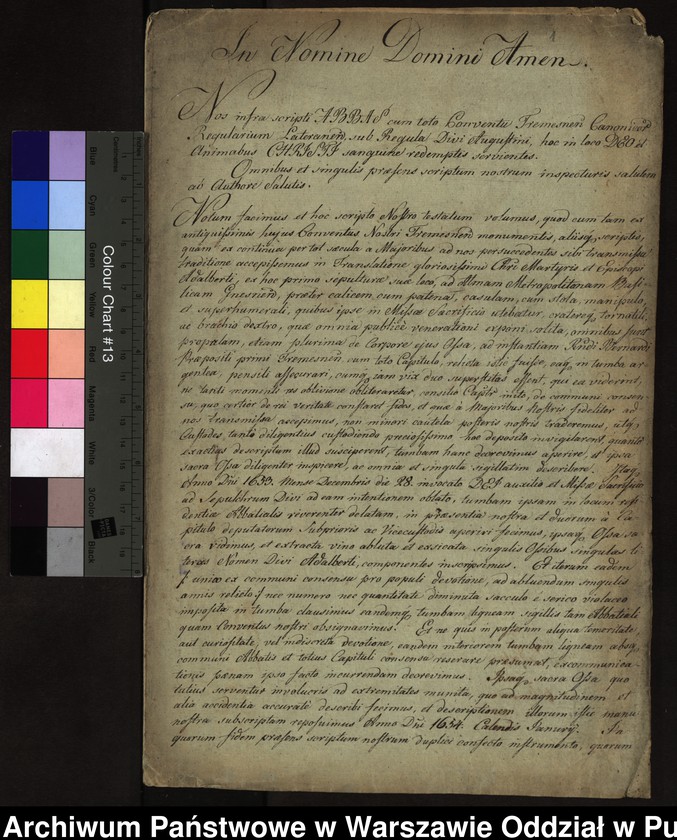 In Nomine Domini Amen.
Nos infra scripti ABBAS cum toto Conventu Tremesnen Canonicor
Regularium Lateranen, sub Regula Divi Augustini, hoc in loco DEO et
Animabus CHRISTI sanguine redemptis servientes.
Omnibus et singulis præsens scriptum nostrum inspecturis salutem
ab Authore Salutis.
Notum facimus et hoc scripto Nostro testatum volumus, quod cum tam ex
antiquissimis hujus Conventus Nostri Tremesnen monumentis, aliisq, scriptis,
quam ex continua per tot sæcula a Majoribus ad nos persuccedentes sibi transmissa
traditione accepissemus in Translatione gloriosissimi Chri Martyris et Episcopi
Adalberti, ex hoc primo sepulturæ suæ loco, ad Almam Metropolitanam Basi-
licam Gnesnen, præter calicem cum patena, casulam, cum stola, manipulo,
et superhumerali, quibus ipse in Missæ Sacrificio utebatur, cratereq, tornatili,
ac brachio dextro, quæ omnia publicè venerationi exponi solita, omnibus sunt
propalam, etiam plurima de Corpore ejus Ossa, ad instantiam Rndi Bernardi
Præpositi primi Tremesnen, cum toto Capitulo, relicta istic fuisse, eaq, in tumba ar-
gentea, pensili asservari, cumq, iam vix duo superstites essent, qui ea viderint,
ne tanti momenti res oblivione obliteraretur, consilio Captri inito, de communi consen-
su, quo certior de rei veritate constaret fides, et quæ à Majoribus Nostris fideliter ad
nos transmissa accepimus, non minori cautela posteris nostris traderemus, utq,
Custodes tanto diligentius custodiendo pretiosissimo hoc deposito invigilarent, quanto
exactius descriptum illud susciperent, tumbam hanc decrevimus aperire, et ipsa
sacra Ossa diligenter inspicere, ac omnia et singula sigillatim describere. Itaq,
Anno Dni 1653. Mense Decembris die 28. invocato DEI auxilio et Missæ Sacrificio
ad Sepulchrum Divi ad eam intentionem oblato, tumbam ipsam in locum resi-
dentiæ Abbatialis reverenter delatam, in præsentia nostra et duorum à Ca-
pitulo deputatorum Subprioris ac Vicecustodis aperiri fecimus, ipsaq, Ossa sa-
cra vidimus, et extracta vino abluta et exsicata singulis Ossibus singulas li-
teras Nomen Divi Adalberti, componentes inscripsimus. Et iterum eadem
/: uncia ex communi consensu pro populi devotione, ad abluendum singulis
annis relicto :/ nec numero nec quantitate diminuta sacculo è serico violaceo
imposita in tumba clausimus eandemq, tumbam ligneam sigillis tam Abbatiali
quam Conventus nostri obsignavimus. Et ne quis in posterum aliqua temeritate,
aut curiositate, vel indiscreta devotione, eandem interiorem tumbam ligneam absq,
communi Abbatis et totius Capituli consensu reserare præsumat, excommunica-
tionis pœnam ipso facto incurrendam decrevimus. Ipsaq, sacra Ossa quo
tutius serventur involucris ad extremitates munita, quo ad magnitudinem et
alia accidentia accuratè describi fecimus, et descriptionem illorum istic manu
nostra subscriptam reposuimus Anno Dni 1654. Calendis Januarij. In
quorum fidem præsens scriptum nostrum duplici confecto instrumento, quorum
Colour Chart #13
Blue
Cyan
Green
Yellow
Red
Magenta
White
3/Color
Black
Centimetres
Inches
Archiwum Państwowe w Warszawie Oddział w Pu